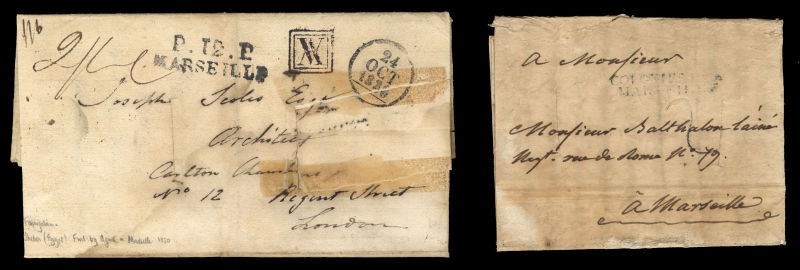 116
P.12.P
MARSEILLE
24
OCT
1820
Joseph Scoles Esqre
Architect
Carlton Chambers
No 12 Regent Street
London
(Egypt) Fwd by Agent Marseille 1820
A Monsieur
COLONIES
MARSEILLE
Monsieur Balthalon l'ainé
Negt. rue de Rome No. 19.
à Marseille